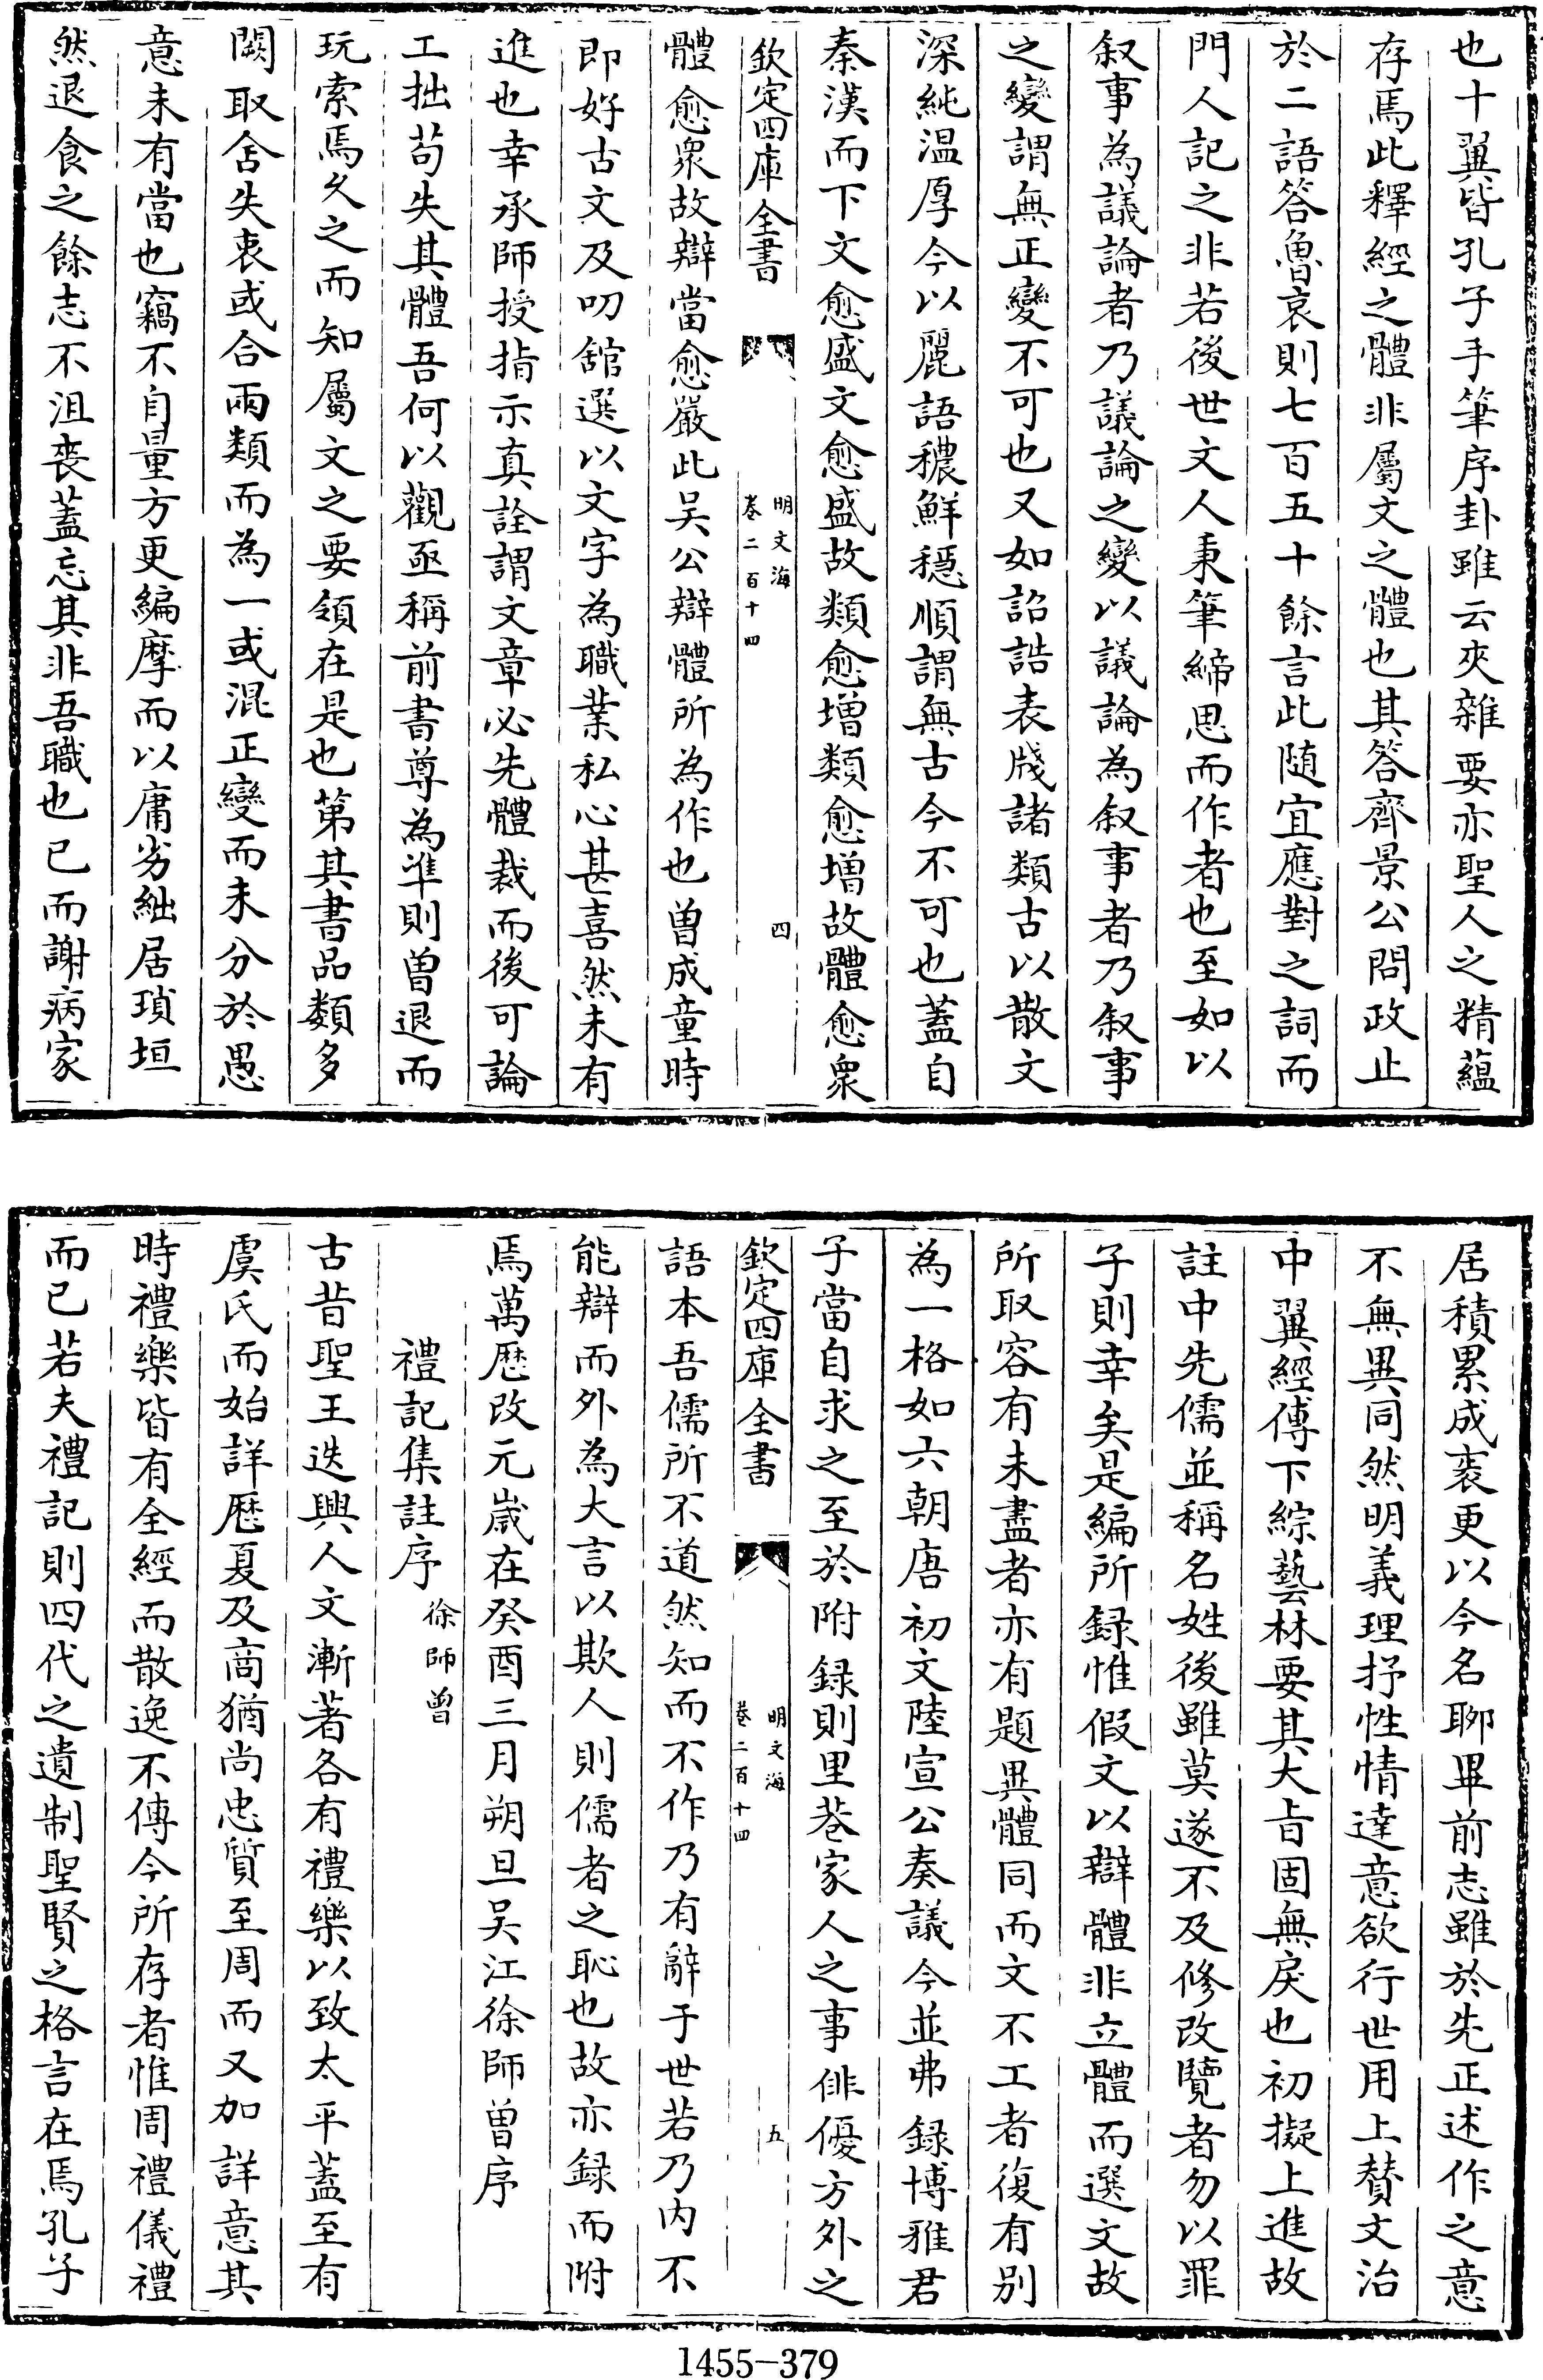 也十翼皆孔子手筆序卦雖云夾雜要亦聖人之精蘊
存焉此釋經之體非屬文之體也其答齊景公問政止
於二語答魯哀則七百五十餘言此随宜應對之詞而
門人記之非若後世文人秉筆締思而作者也至如以
叙事為議論者乃議論之變以議論為叙事者乃叙事
之變謂無正變不可也又如詔誥表牋諸類古以散文
深純温厚今以麗語穠鮮穩順謂無古今不可也蓋自
秦漢而下文愈盛文愈盛故類愈增類愈增故體愈衆
欽定四庫全書
明文海
卷二百十四
四
體愈衆故辯當愈嚴此吴公辯體所為作也曽成童時
即好古文及叨舘選以文字為職業私心甚喜然未有
進也幸承師授指示真詮謂文章必先體裁而後可論
工拙苟失其體吾何以觀亟稱前書尊為凖則曽退而
玩索焉久之而知屬文之要領在是也第其書品類多
闕取舍失衷或合兩類而為一或混正變而未分於愚
意未有當也竊不自量方更編摩而以庸劣絀居瑣垣
然退食之餘志不沮喪蓋忘其非吾職也已而謝病家
居積累成袠更以今名聊畢前志雖於先正述作之意
不無異同然明義理抒性情達意欲行世用上賛文治
中翼經傳下綜藝林要其大㫖固無戾也初擬上進故
註中先儒並稱名姓後雖莫遂不及修改覽者勿以罪
子則幸矣是編所録惟假文以辯體非立體而選文故
所取容有未盡者亦有題異體同而文不工者復有别
為一格如六朝唐初文陸宣公奏議今並弗録博雅君
子當自求之至於附録則里巷家人之事俳優方外之
欽定四庫全書
明文海
卷二百十四
五
語本吾儒所不道然知而不作乃有辭于世若乃内不
能辯而外為大言以欺人則儒者之恥也故亦録而附
焉萬厯改元歲在癸酉三月朔旦吴江徐師曽序
禮記集註序 徐師曽
古昔聖王迭興人文漸著各有禮樂以致太平蓋至有
虞氏而始詳厯夏及商猶尚忠質至周而又加詳意其
時禮樂皆有全經而散逸不傳今所存者惟周禮儀禮
而已若夫禮記則四代之遺制聖賢之格言在焉孔子
1455-379